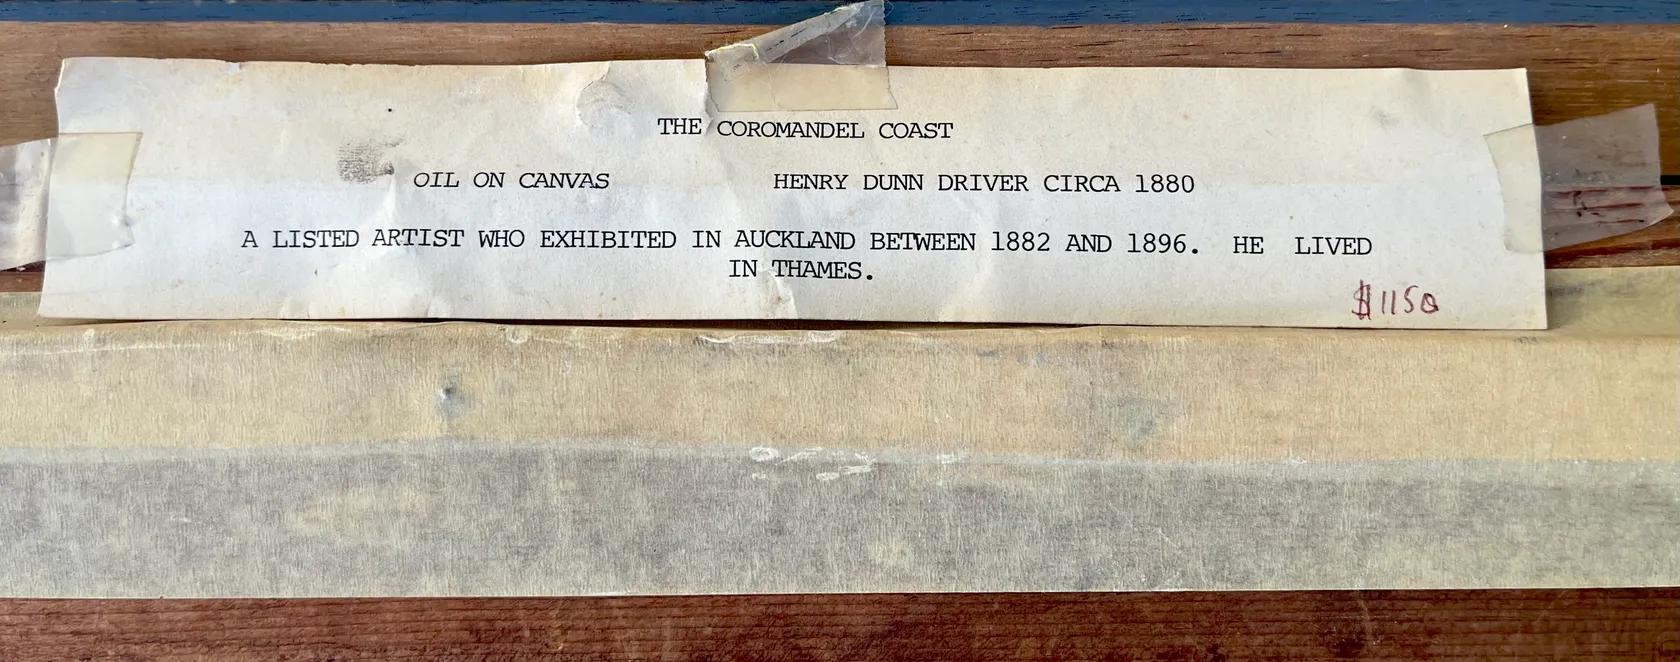 THE COROMANDEL COAST
OIL ON CANVAS HENRY DUNN DRIVER CIRCA 1880
A LISTED ARTIST WHO EXHIBITED IN AUCKLAND BETWEEN 1882 AND 1896. HE LIVED
IN THAMES.
$1150